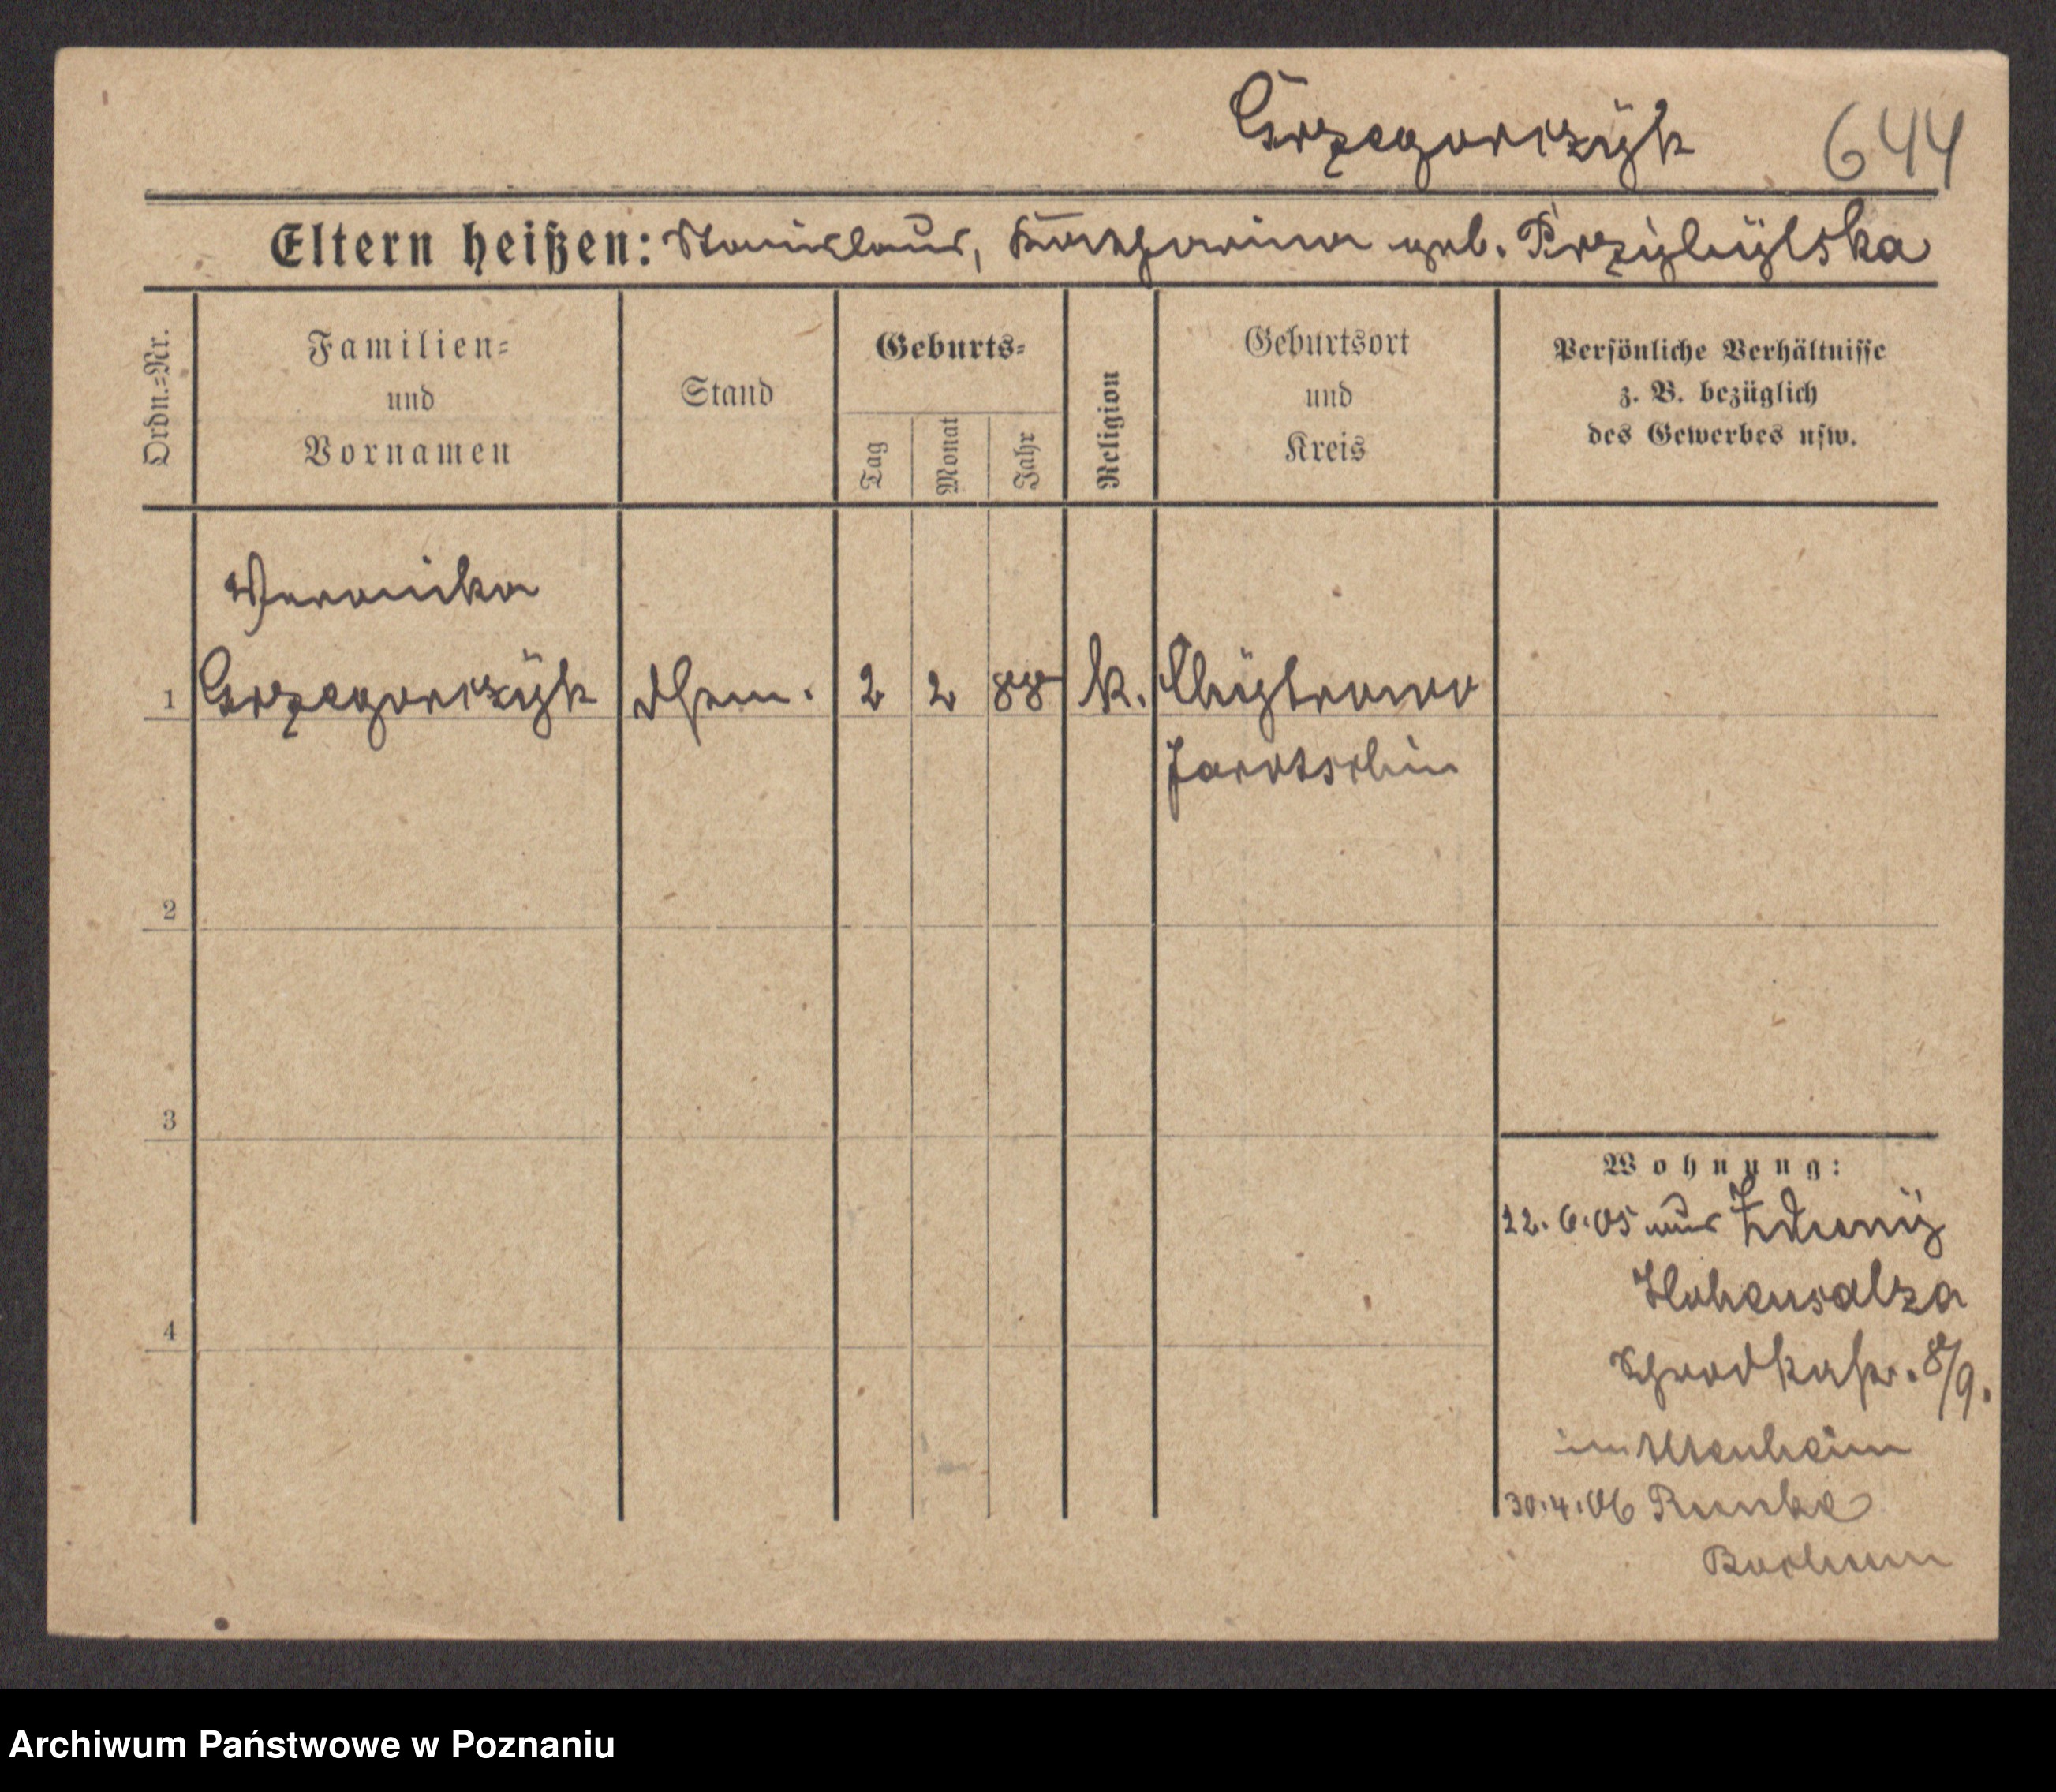 Grzegorczÿk 644
Eltern heißen: Stanislaus, Katharina geb. Przÿbÿlska
Ordn.-Nr.
Familien-
und
Vornamen
Stand
Geburts-
Tag
Monat
Jahr
Religion
Geburtsort
und
Kreis
Persönliche Verhältnisse
z. B. bezüglich
des Gewerbes usw.
Veronika
1 Grzegorczÿk 2 2 88 k.
Jarotschin
2
3
4
Wohnung:
22.6.05 aus Zdunÿ
Hohensalza
8/9.
im
30.4.06
Bochum
Archiwum Państwowe w Poznaniu